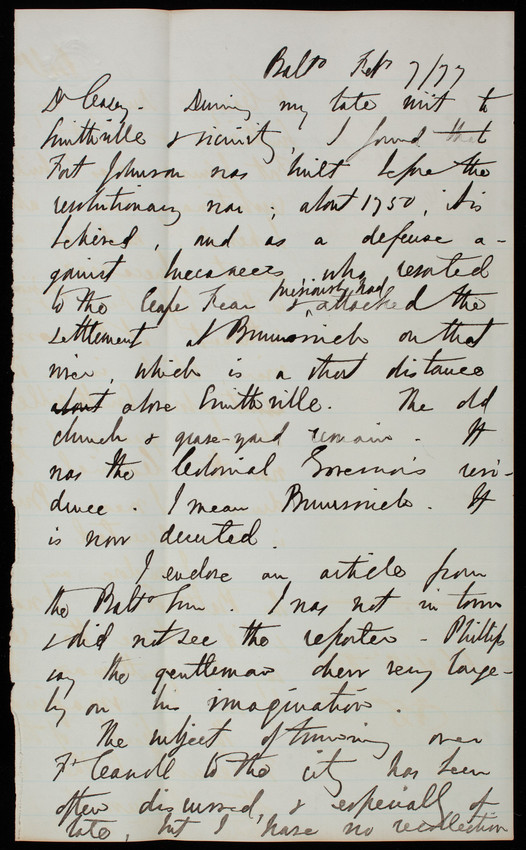 Balto Feb 7/77
Dr Casey - During my late visit to
Smithville & vicinity, I found that
Fort Johnson was built before the
revolutionary war; about 1750, it is
believed, and as a defense a-
gainst buccaneers, who resorted
to the Cape Fear & previously had attacked the
settlement at Brunswick on that
river, which is a short distance
about above Smithville. The old
church & grave-yard remain. It
was the Colonial Governor's resi-
dence. I mean Brunswick. It
is now deserted.
I enclose an article from
the Balto Sun. I was not in town
& did not see the reporter - Phillips
say the gentleman drew very large-
ly on his imagination.
The subject of turning over
Ft Carroll to the city has been
often discussed, & especially of
late, but I have no recollection